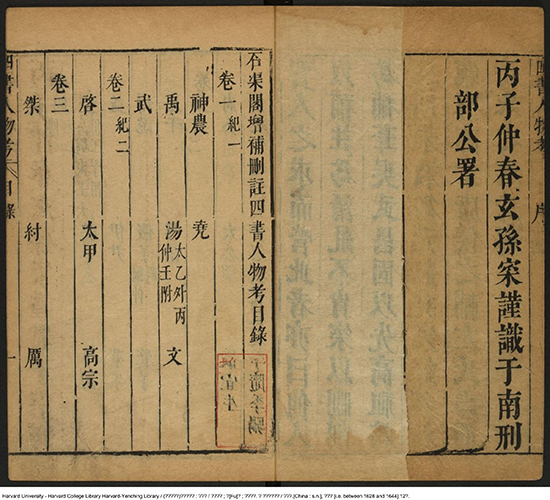 丙子仲春玄孫寀謹識于南刑
部公署
石渠閣增補刪註四書人物考目錄
卷一 紀一
神農 堯
禹 湯 太乙外丙仲壬附 文
武
卷二 紀二
啓 太甲 高宗
卷三
桀 紂 厲
四書人物考 目錄 一
Harvard University - Harvard College Library Harvard-Yenching Library / (?????)????? : ??? / ???? ; ?[Fu]? ; ????. ? ?????? / ???.[China : s.n.], ??? [i.e. between 1628 and 1644] 12?.